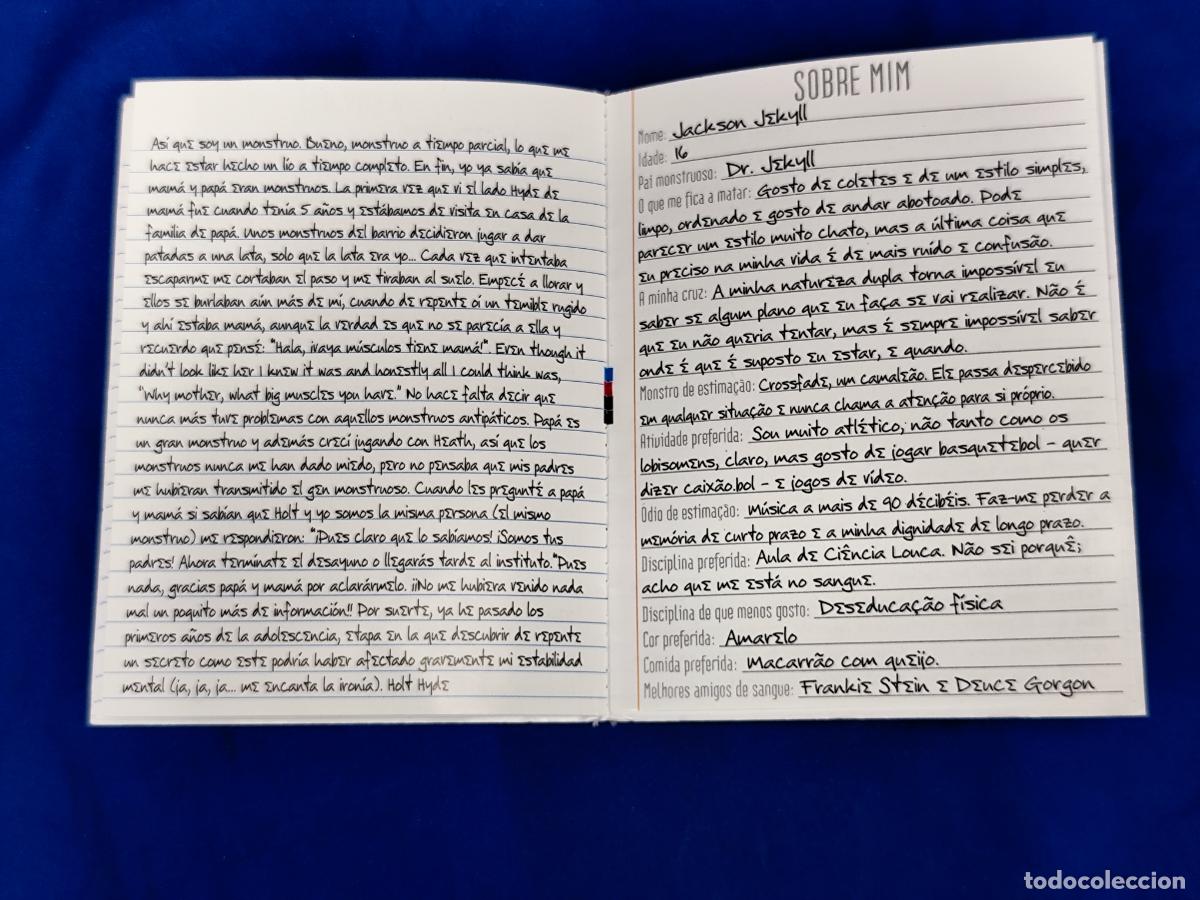 Así que soy un monstruo. Bueno, monstruo a tiempo parcial, lo que me
hace estar hecho un lío a tiempo completo. En fin, yo ya sabía que
mamá y papá eran monstruos. La primera vez que vi el lado Hyde de
mamá fue cuando tenía 5 años y estábamos de visita en casa de la
familia de papá. Unos monstruos del barrio decidieron jugar a dar
patadas a una lata, solo que la lata era yo... Cada vez que intentaba
escaparme me cortaban el paso y me tiraban al suelo. Empecé a llorar y
ellos se burlaban aún más de mí, cuando de repente oí un temible rugido
y ahí estaba mamá, aunque la verdad es que no se parecía a ella y
recuerdo que pensé: "Hala, ¡vaya músculos tiene mamá!". Even though it
didn't look like her I knew it was and honestly all I could think was,
"Why mother, what big muscles you have." No hace falta decir que
nunca más tuve problemas con aquellos monstruos antipáticos. Papá es
un gran monstruo y además crecí jugando con Heath, así que los
monstruos nunca me han dado miedo, pero no pensaba que mis padres
me hubieran transmitido el gen monstruoso. Cuando les pregunté a papá
y mamá si sabían que Holt y yo somos la misma persona (el mismo
monstruo) me respondieron: "¡Pues claro que lo sabíamos! ¡Somos tus
padres! Ahora termínate el desayuno o llegarás tarde al instituto."Pues
nada, gracias papá y mamá por aclarármelo. ¡¡No me hubiera venido nada
mal un poquito más de información!! Por suerte, ya he pasado los
primeros años de la adolescencia, etapa en la que descubrir de repente
un secreto como este podría haber afectado gravemente mi estabilidad
mental (ja, ja, ja... me encanta la ironía). Holt Hyde
SOBRE MIM
Nome: Jackson Jekyll
Idade: 16
Pai monstruoso: Dr. Jekyll
O que me fica a matar: Gosto de coletes e de um estilo simples,
limpo, ordenado e gosto de andar abotoado. Pode
parecer um estilo muito chato, mas a última coisa que
eu preciso na minha vida é de mais ruído e confusão.
A minha cruz: A minha natureza dupla torna impossível eu
saber se algum plano que eu faça se vai realizar. Não é
que eu não queria tentar, mas é sempre impossível saber
onde é que é suposto eu estar, e quando.
Monstro de estimação: Crossfade, um camaleão. Ele passa despercebido
em qualquer situação e nunca chama a atenção para si próprio.
Atividade preferida: Sou muito atlético, não tanto como os
lobisomens, claro, mas gosto de jogar basquetebol - quer
dizer caixão.bol - e jogos de vídeo.
Ódio de estimação: Música a mais de 90 décibéis. Faz-me perder a
memória de curto prazo e a minha dignidade de longo prazo.
Disciplina preferida: Aula de Ciência Louca. Não sei porquê;
acho que me está no sangue.
Disciplina de que menos gosto: Deseducação física
Cor preferida: Amarelo
Comida preferida: Macarrão com queijo.
Melhores amigos de sangue: Frankie Stein e Deuce Gorgon
todocoleccion